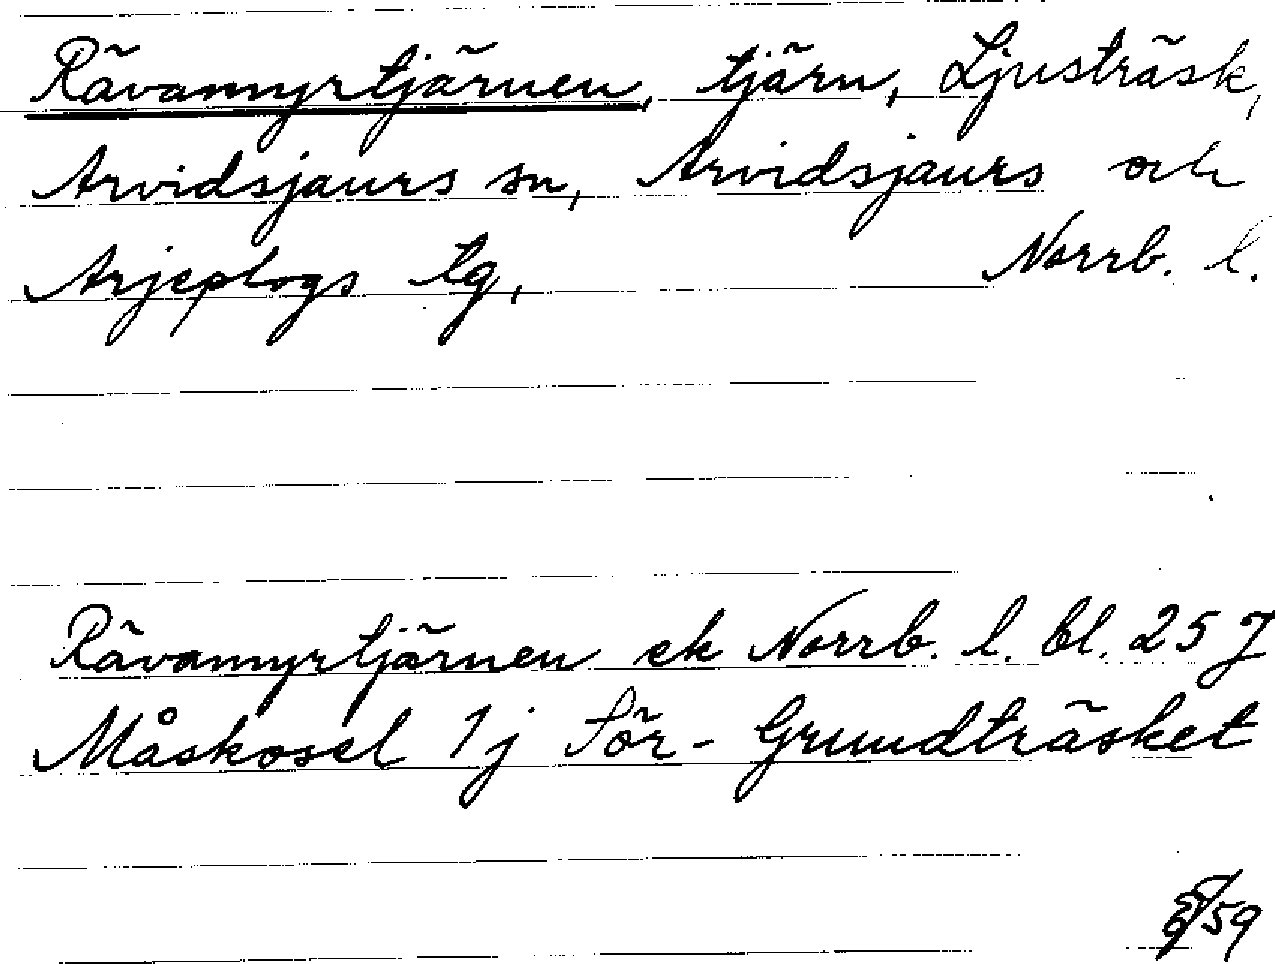 Rävamyrtjärnen, tjärn, Ljusträsk,
Arvidsjaurs sn, Arvidsjaurs och
Arjeplogs tg, Norrb. l.
Rävamyrtjärnen ek Norrb. l. bl. 25 J
Måskosel 1j Sör-Grundträsket
59